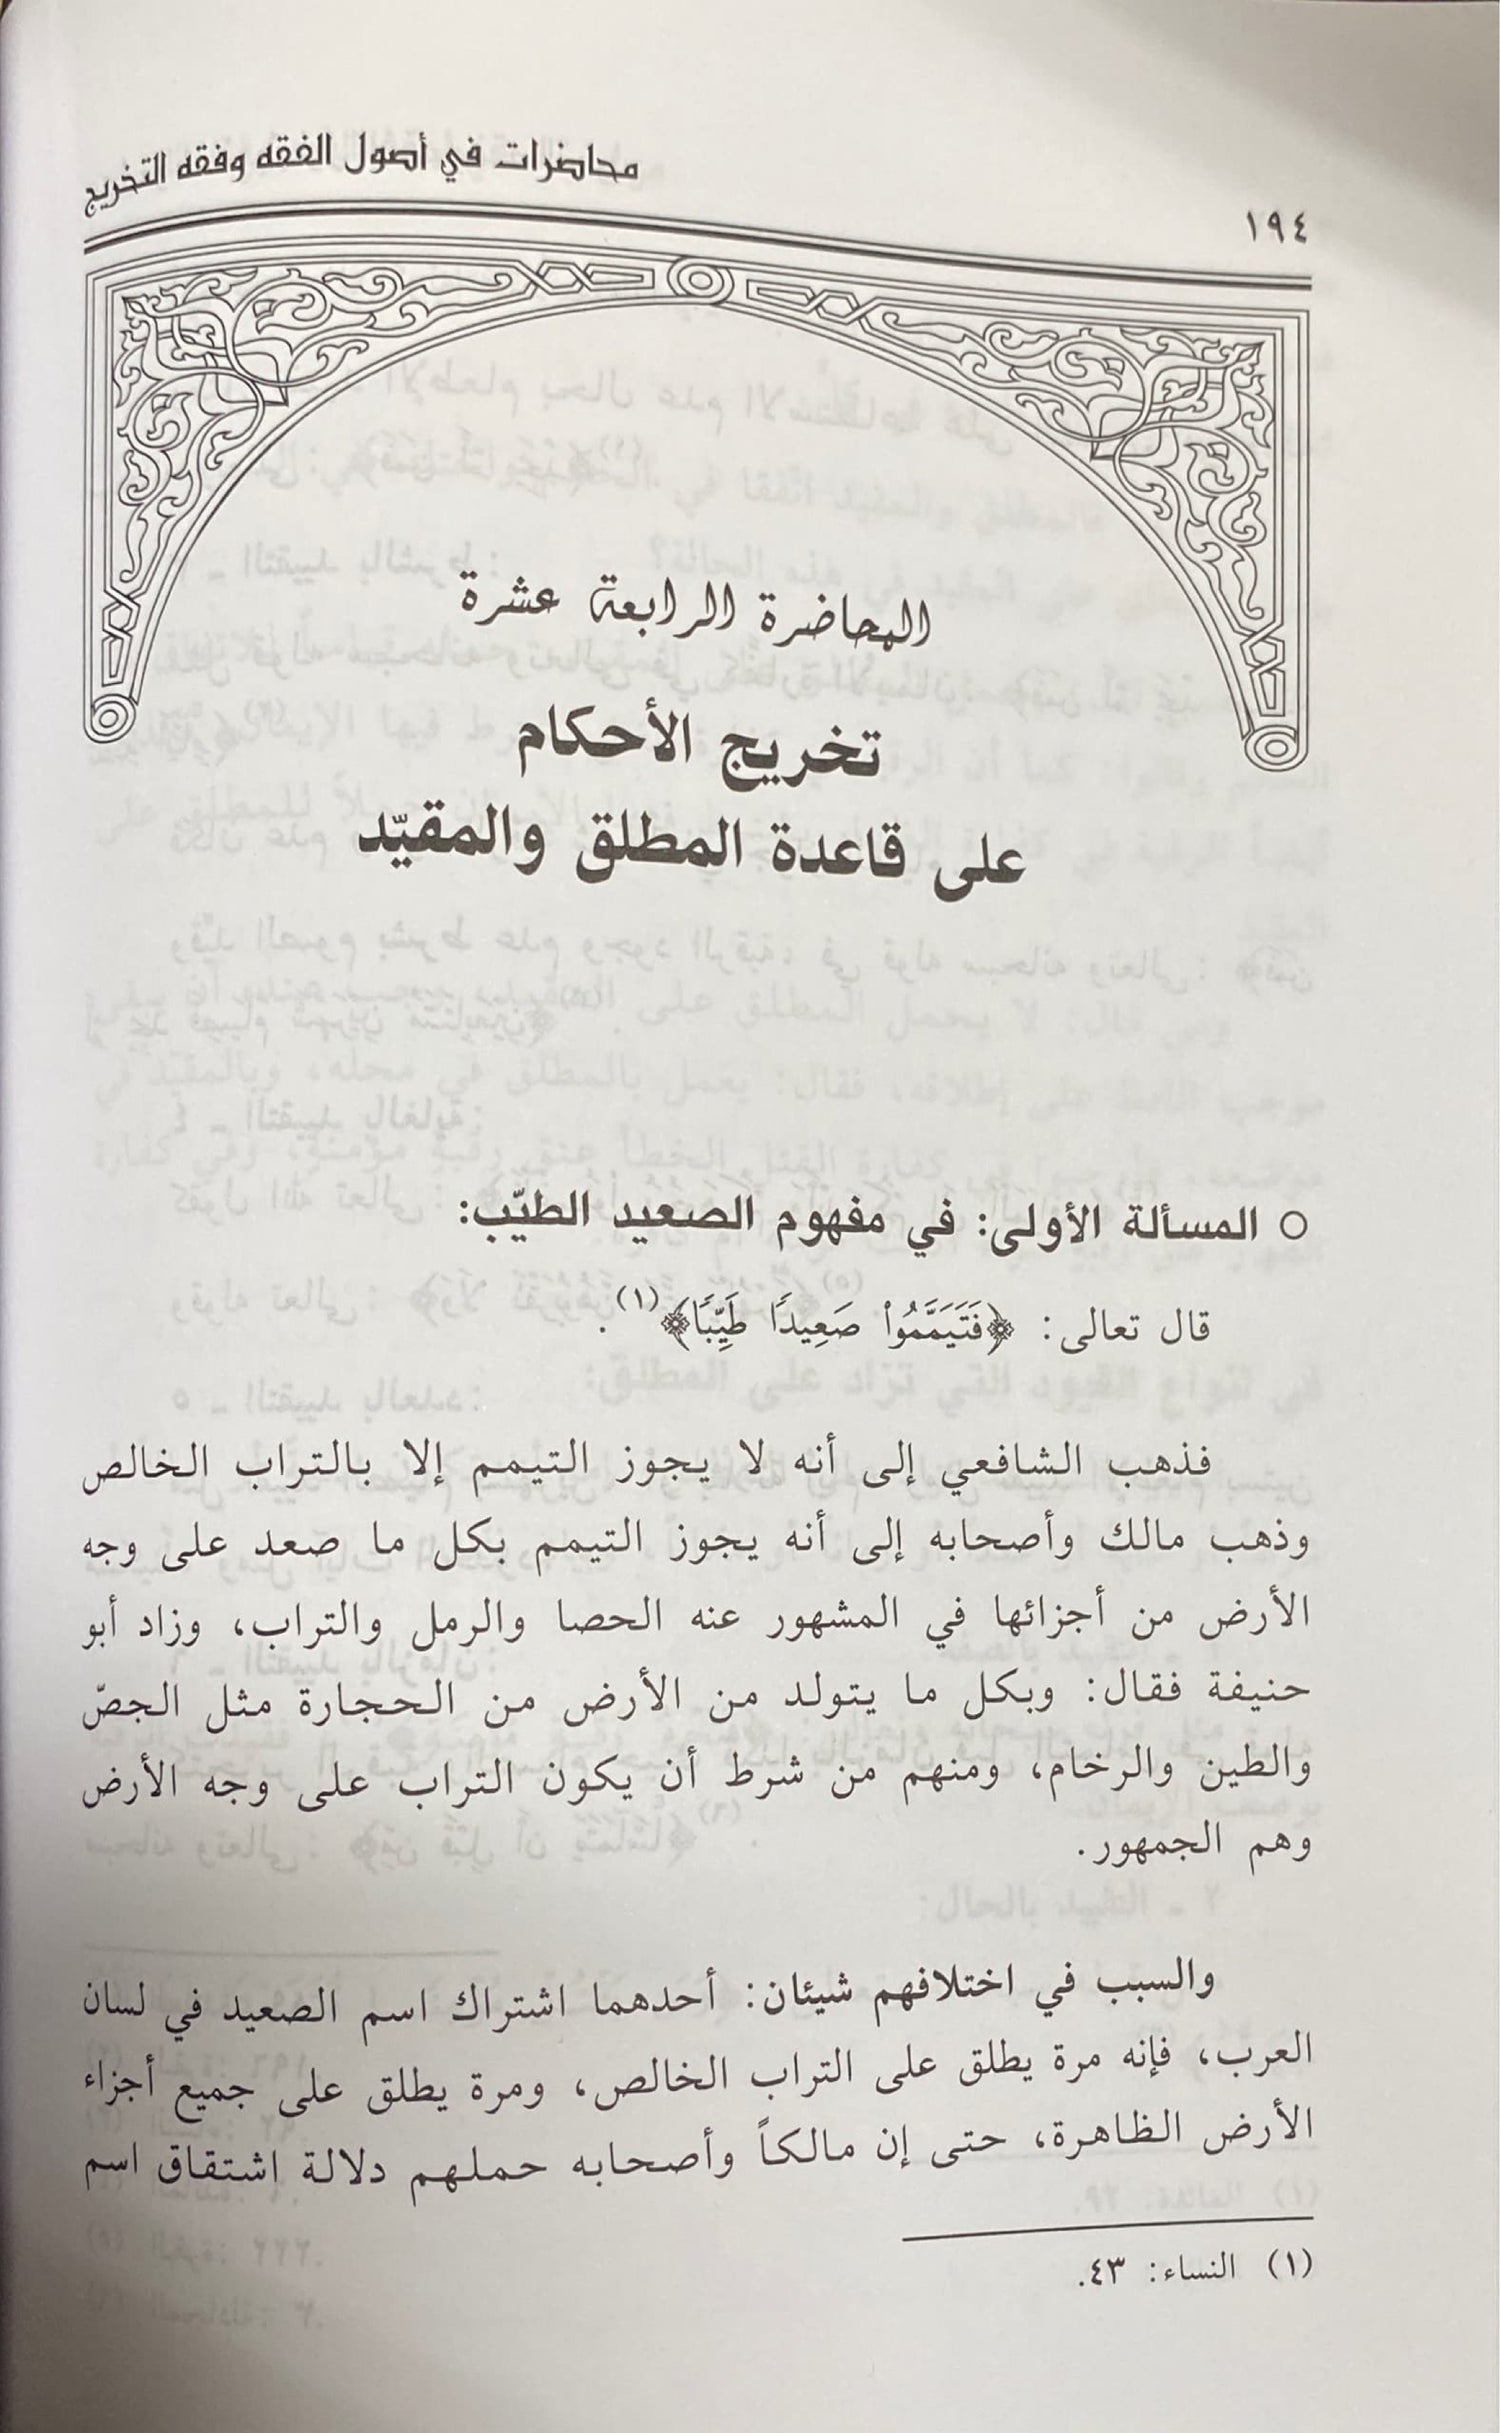 محاضرات في أصول الفقه وفقه التخريج
١٩٤
المحاضرة الرابعة عشرة
تخريج الأحكام
على قاعدة المطلق والمقيّد
○ المسألة الأولى: في مفهوم الصعيد الطيّب:
قال تعالى: ﴿فَتَيَمَّمُوا۟ صَعِيدًا طَيِّبًا﴾(١).
فذهب الشافعي إلى أنه لا يجوز التيمم إلا بالتراب الخالص
وذهب مالك وأصحابه إلى أنه يجوز التيمم بكل ما صعد على وجه
الأرض من أجزائها في المشهور عنه الحصا والرمل والتراب، وزاد أبو
حنيفة فقال: وبكل ما يتولد من الأرض من الحجارة مثل الجصّ
والطين والرخام، ومنهم من شرط أن يكون التراب على وجه الأرض
وهم الجمهور.
والسبب في اختلافهم شيئان: أحدهما اشتراك اسم الصعيد في لسان
العرب، فإنه مرة يطلق على التراب الخالص، ومرة يطلق على جميع أجزاء
الأرض الظاهرة، حتى إن مالكاً وأصحابه حملهم دلالة اشتقاق اسم
(١) النساء: ٤٣.